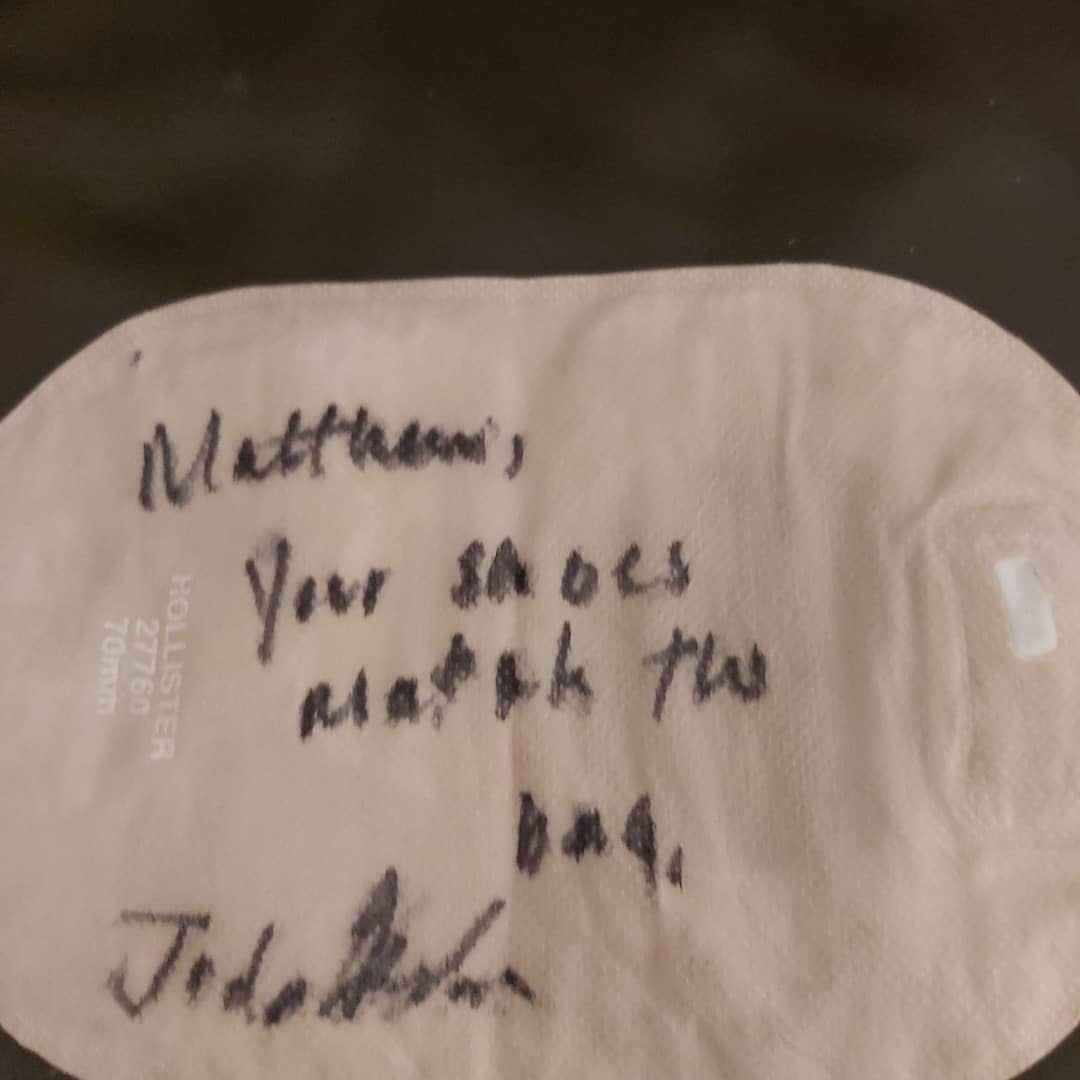 Matthew,
Your shoes
match the
bag,
HOLLISTER
27760
70mm